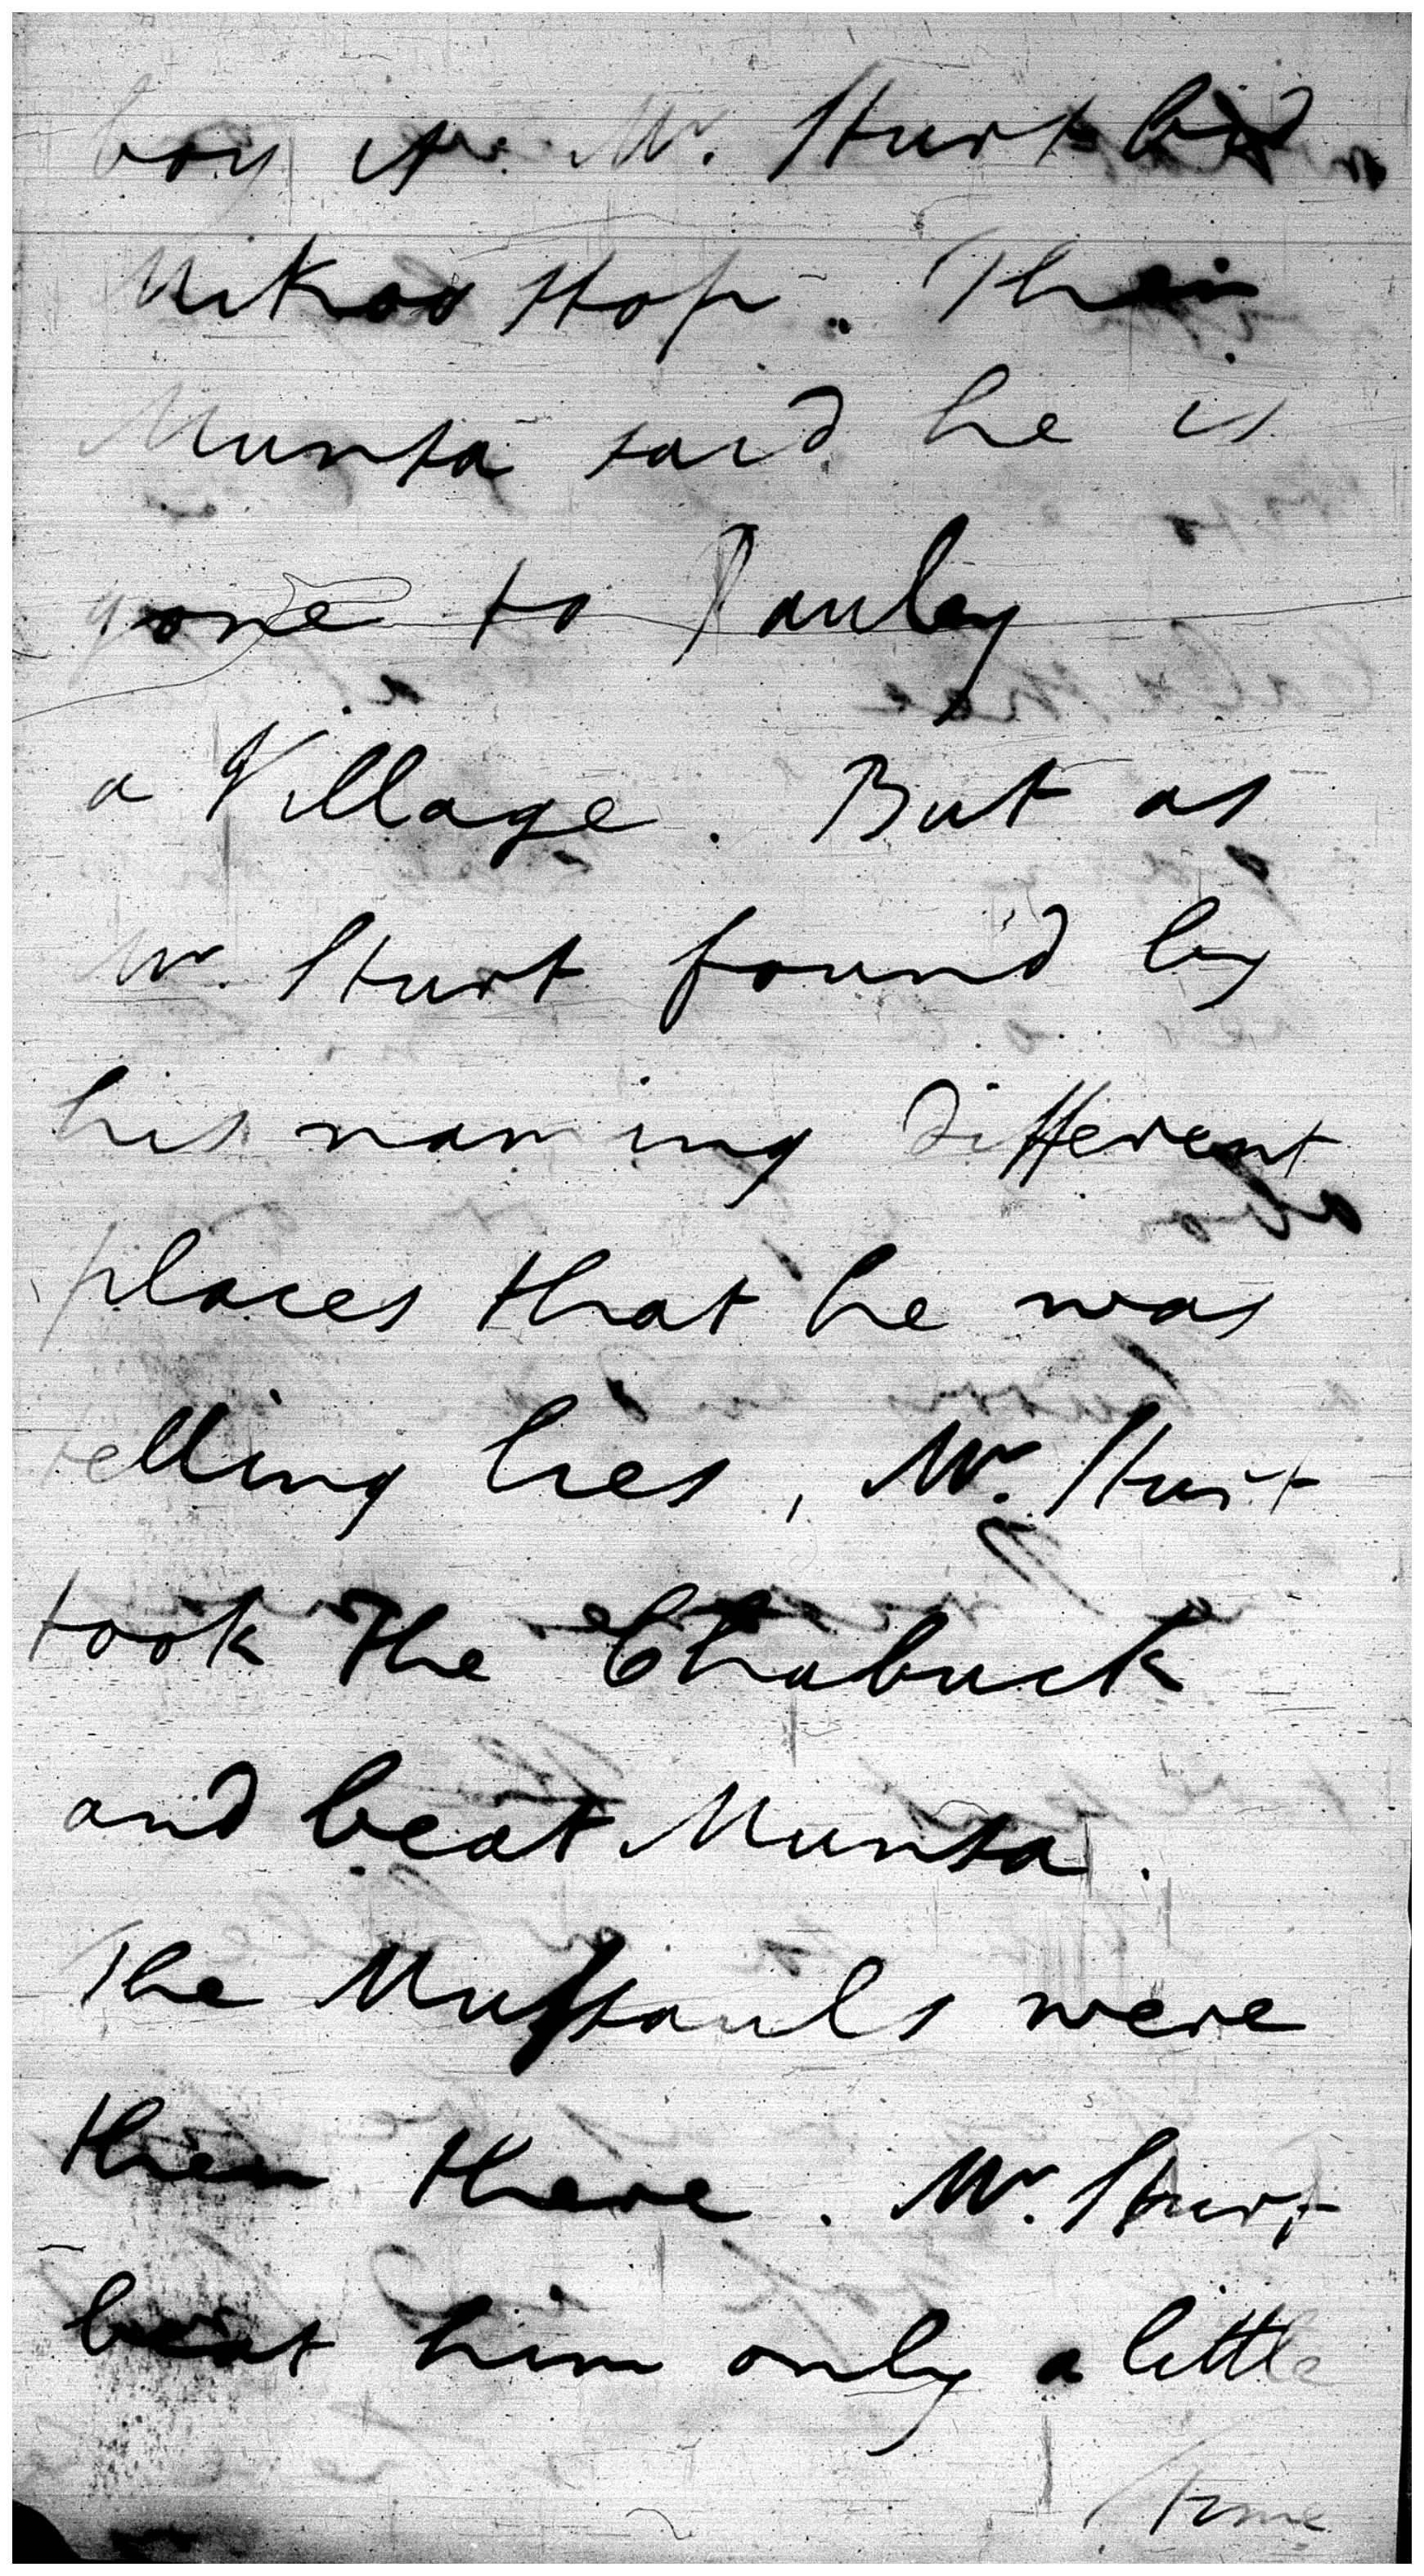 boy is. Mr. Sturt bid
Mikoo Stop. Then
Munsa said he is
gone to Pauley
a Village. But as
Mr. Sturt found by
his naming different
places that he was
telling lies, Mr. Sturt
took the Chabuck
and beat Munsa.
The Mussauls were
then there. Mr. Sturt
beat him only a little
time